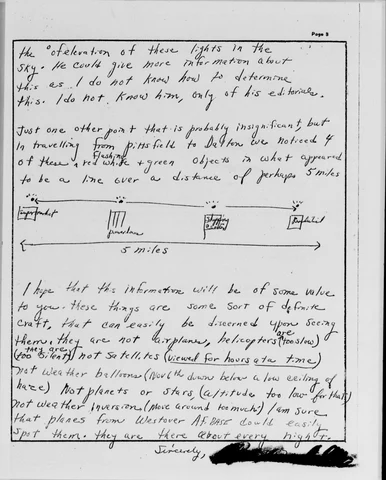 Page 5
the ° of elevation of these lights in the
sky. He could give more information about
this as I do not know how to determine
this. I do not know him, only of his editorials.
Just one other point that is probably insignificant, but
in travelling from Pittsfield to Dalton we noticed 4
of these red white + green flashing objects in what appeared
to be a line over a distance of perhaps 5 miles
5 miles
I hope that this information will be of some value
to you. these things are some sort of definite
craft, that can easily be discerned upon seeing
them. they are not airplanes, helicopters (are too slow)
(they are too silent) not satellites (viewed for hours at a time)
not weather balloons (move up + down below a low ceiling of
haze) Not planets or stars (altitude too low for that)
not weather inversion (move around too much) I am sure
that planes from Westover AF. BASE could easily
spot them. they are there about every night.
Sincerely,